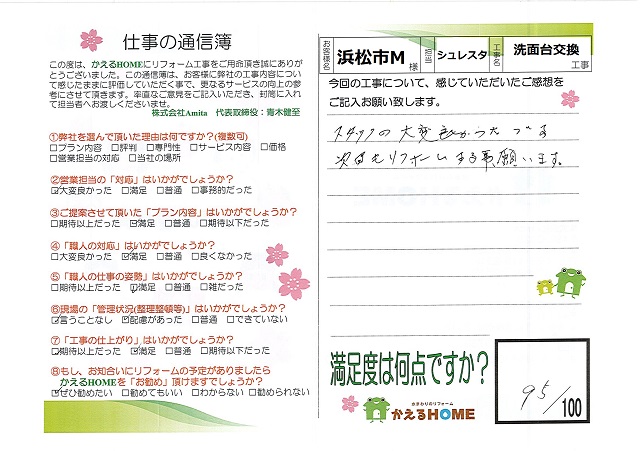 仕事の通信簿
この度は、かえるHOMEにリフォーム工事をご用命頂き誠にありが
とうございました。この通信簿は、お客様に弊社の工事内容につい
て感じたままに評価していただく事で、更なるサービスの向上の参
考にさせて頂きます。率直なご意見をご記入いただき、封筒に入れ
て担当者へお渡しくださいませ。
株式会社Amita 代表取締役:青木健至
①弊社を選んで頂いた理由は何ですか?(複数可)
□プラン内容 □評判 □専門性 □サービス内容 □価格
□営業担当の対応 □当社の場所
②営業担当の「対応」はいかがでしょうか?
☑大変良かった □満足 □普通 □事務的だった
③ご提案させて頂いた「プラン内容」はいかがでしょうか?
□期待以上だった ☑満足 □普通 □期待以下だった
④「職人の対応」はいかがでしょうか?
□大変良かった ☑満足 □普通 □良くなかった
⑤「職人の仕事の姿勢」はいかがでしょうか?
□期待以上だった ☑満足 □普通 □雑だった
⑥現場の「管理状況(整理整頓等)」はいかがでしょうか?
☑言うことなし ☑配慮があった □普通 □できていない
⑦「工事の仕上がり」はいかがでしょうか?
☑期待以上だった ☑満足 □普通 □期待以下だった
⑧もし、お知合いにリフォームの予定がありましたら
かえるHOMEを「お勧め」頂けますでしょうか?
☑ぜひ勧めたい □勧めてもいい □わからない □勧められない
お客様名 浜松市M 様 担当 シュレスタ 工事名 洗面台交換 工事
今回の工事について、感じていただいたご感想を
ご記入お願い致します。
スタッフの大変
次回もリフォームする事願います。
満足度は何点ですか?
95/100
水まわりのリフォーム
かえるHOME